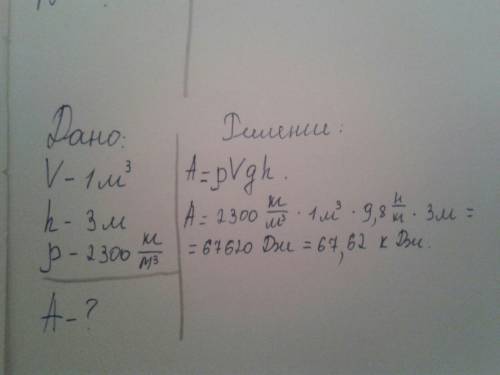 Дано:
V - 1 м³
h - 3 м
ρ - 2300 кг/м³
A - ?
Решение:
A = ρVgh.
A = 2300 кг/м³ · 1 м³ · 9,8 Н/кг · 3 м =
= 67620 Дж = 67,62 кДж.